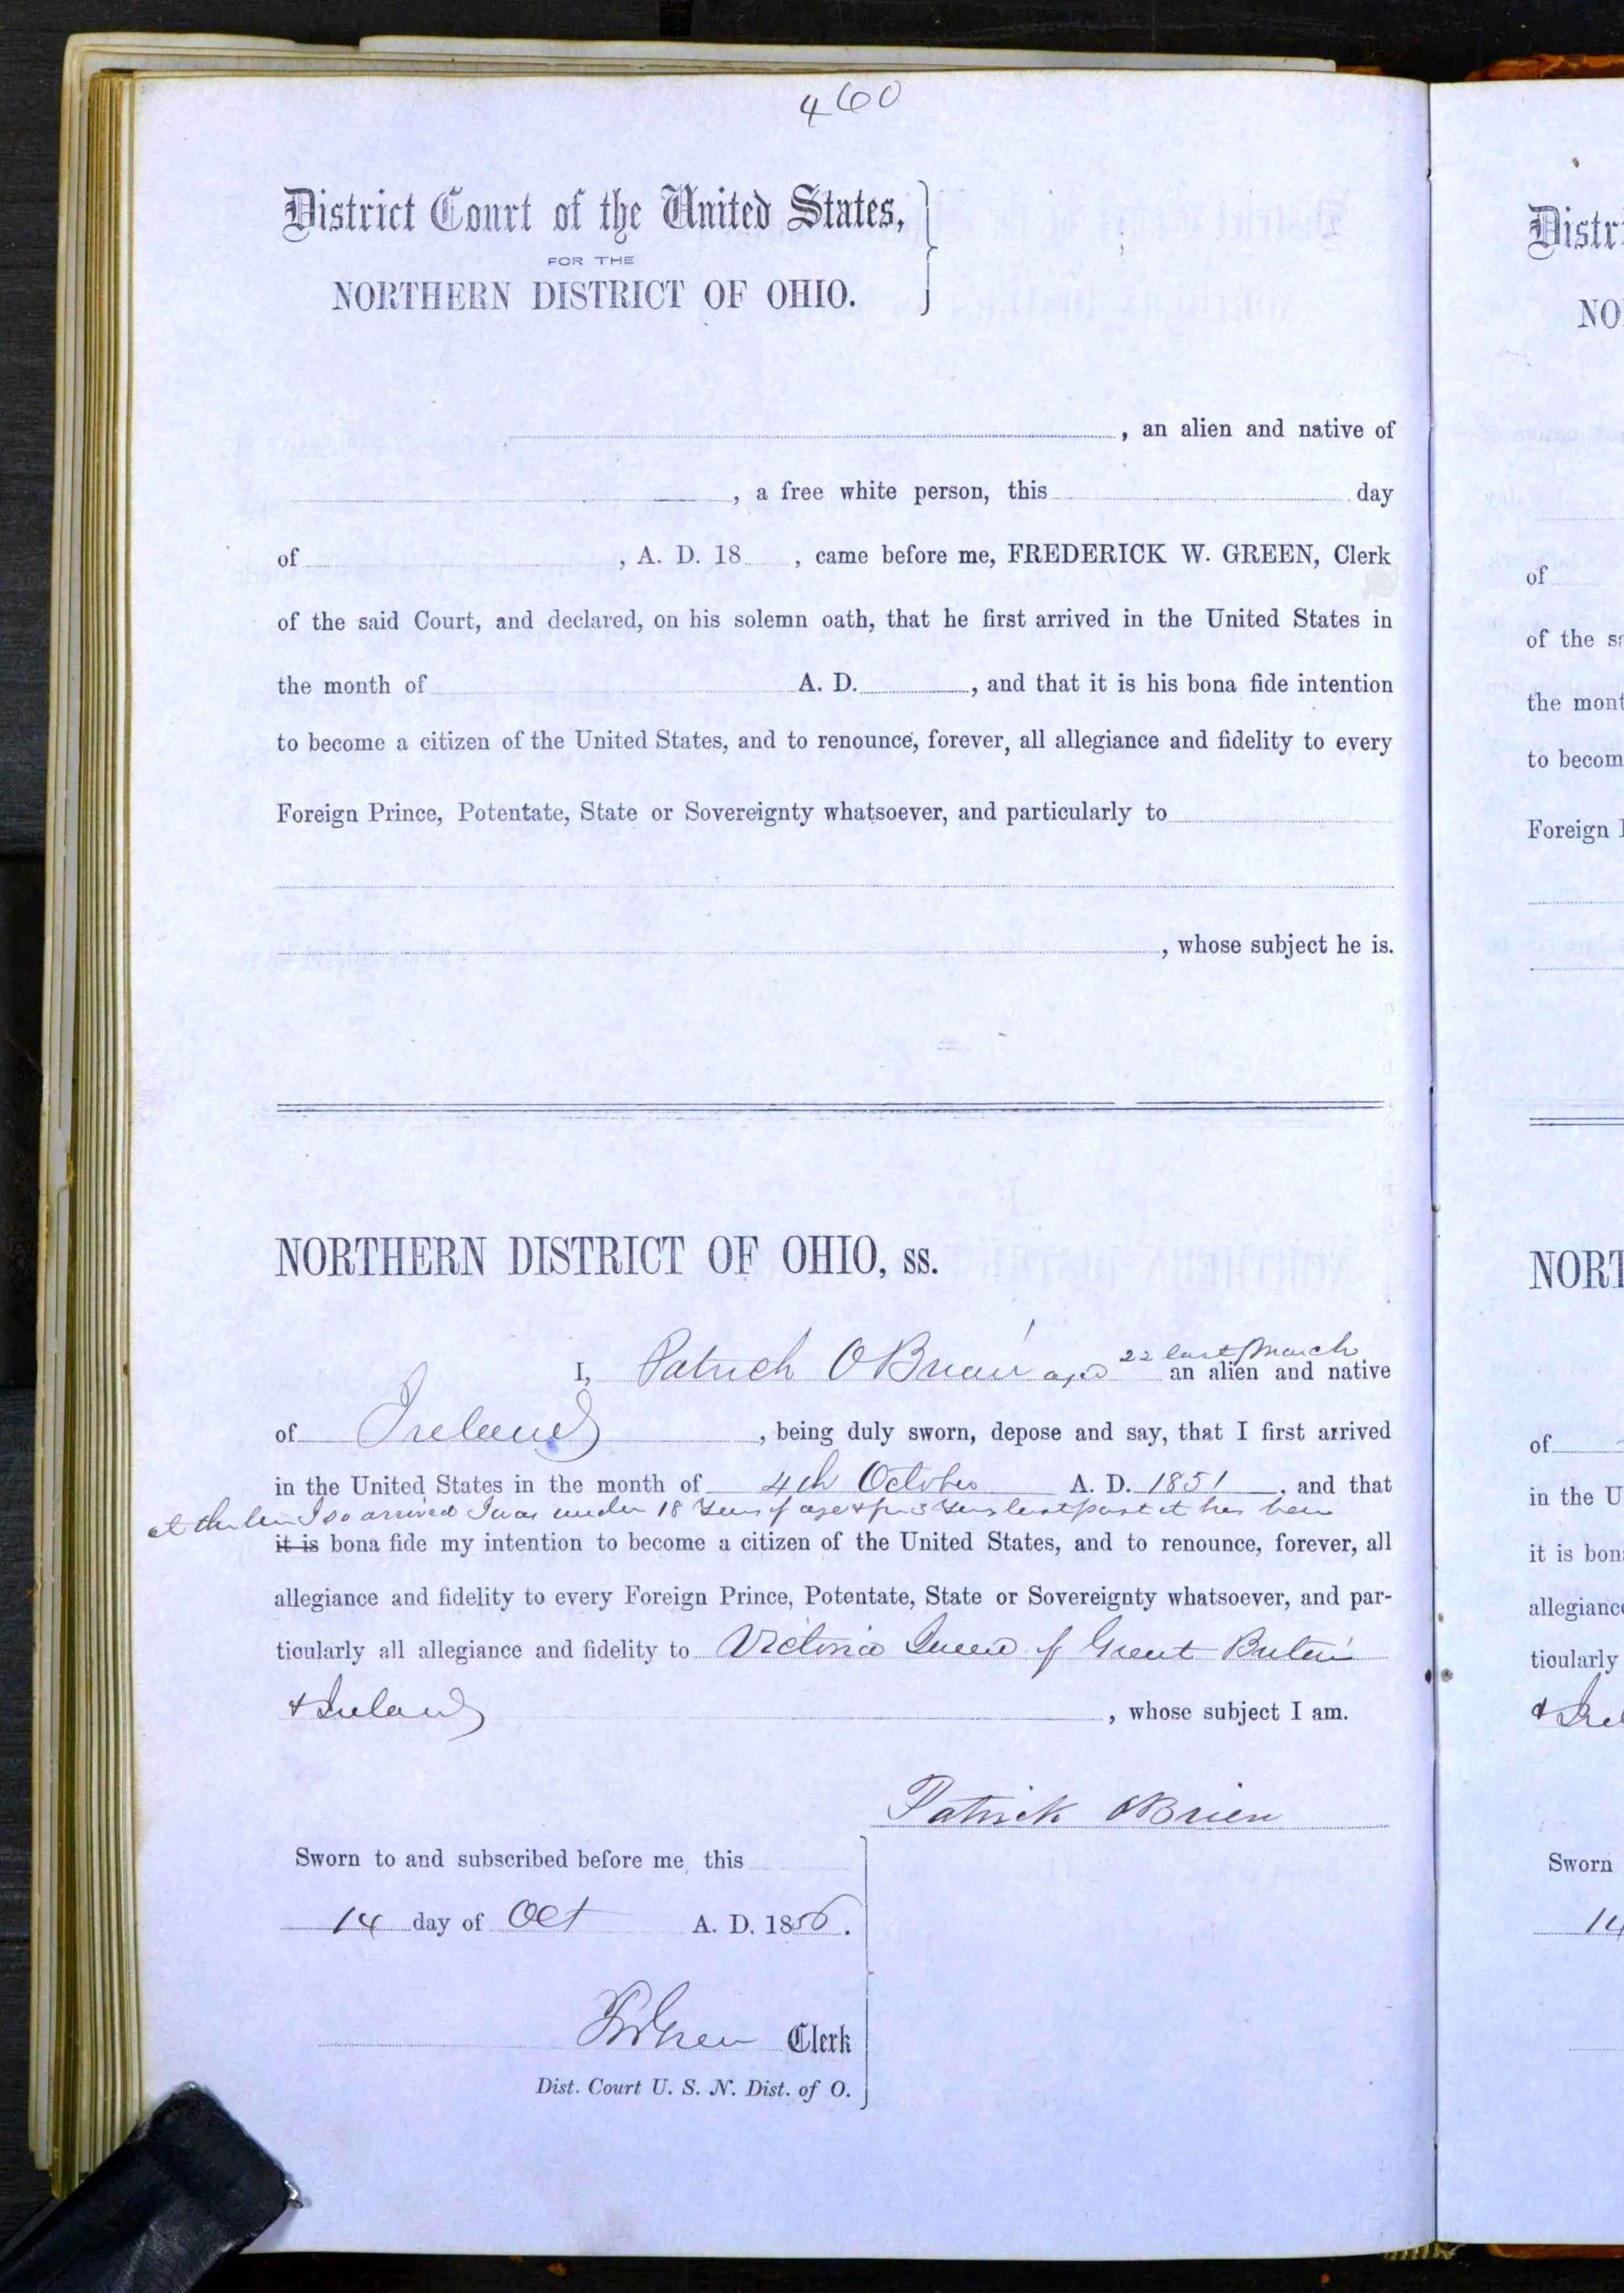 460
District Court of the United States,
FOR THE
NORTHERN DISTRICT OF OHIO.
, an alien and native of
, a free white person, this day
of , A. D. 18 , came before me, FREDERICK W. GREEN, Clerk
of the said Court, and declared, on his solemn oath, that he first arrived in the United States in
the month of A. D. , and that it is his bona fide intention
to become a citizen of the United States, and to renounce, forever, all allegiance and fidelity to every
Foreign Prince, Potentate, State or Sovereignty whatsoever, and particularly to
, whose subject he is.
NORTHERN DISTRICT OF OHIO, ss.
22 last March
I, Patrick O'Brien aged an alien and native
of Ireland , being duly sworn, depose and say, that I first arrived
in the United States in the month of 4th October A. D. 1851 , and that
at the time I so arrived I was under 18 Years of age & for 3 Years last past it has been
it is bona fide my intention to become a citizen of the United States, and to renounce, forever, all
allegiance and fidelity to every Foreign Prince, Potentate, State or Sovereignty whatsoever, and par-
ticularly all allegiance and fidelity to Victoria Queen of Great Britain
& Ireland , whose subject I am.
Patrick OBrien
Sworn to and subscribed before me, this
14 day of Oct A. D. 1856.
FWGreen Clerk
Dist. Court U. S. N. Dist. of O.
Distr
NO
of
of the s
the mont
to becom
Foreign
NORT
of
in the U
it is bon
allegianc
ticularly
& Irel
Sworn
14